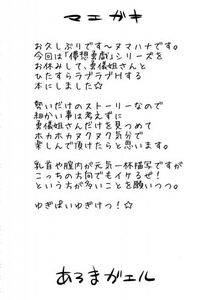 マエガキ
お久しぶりです〜ヌマハナです。
今回は『儚想奏戯』シリーズを
お休みして、勇儀姐さんと
ひたすらラブラブHする
本にしました☆
勢いだけのストーリーなので
細かい事は考えずに
勇儀姐さんだけを見つめて
ホカホカヌクヌク気分で
楽しんで頂けたらと思います。
乳首や膣内が元気一杯描写ですが
こっちの方向でもイケるぜ!
という方が多いことを願いつつ。
ゆぎぱいゆぎけつっ!☆
あるまガエル